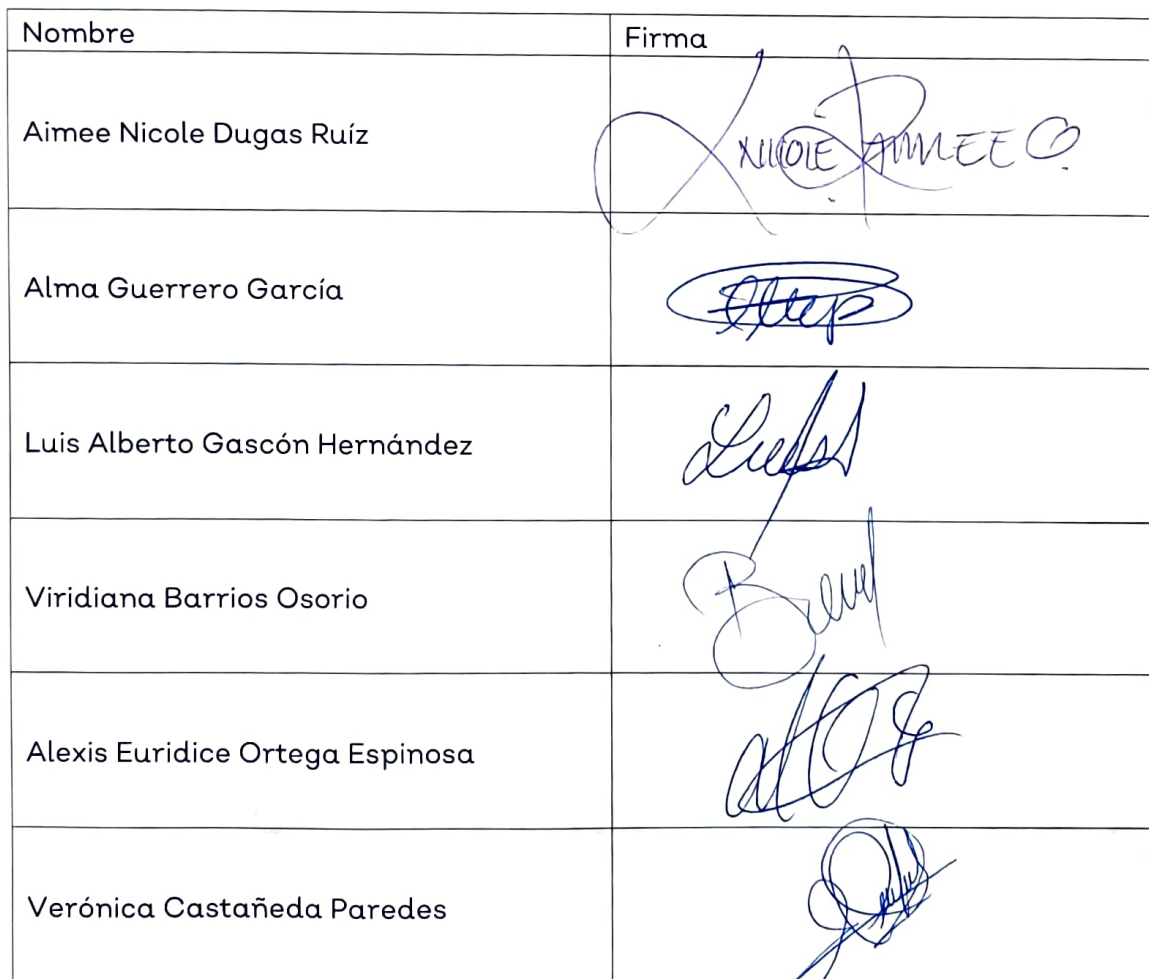 Nombre Firma
Aimee Nicole Dugas Ruíz NICOLE AIMEE
Alma Guerrero García
Luis Alberto Gascón Hernández
Viridiana Barrios Osorio
Alexis Euridice Ortega Espinosa
Verónica Castañeda Paredes